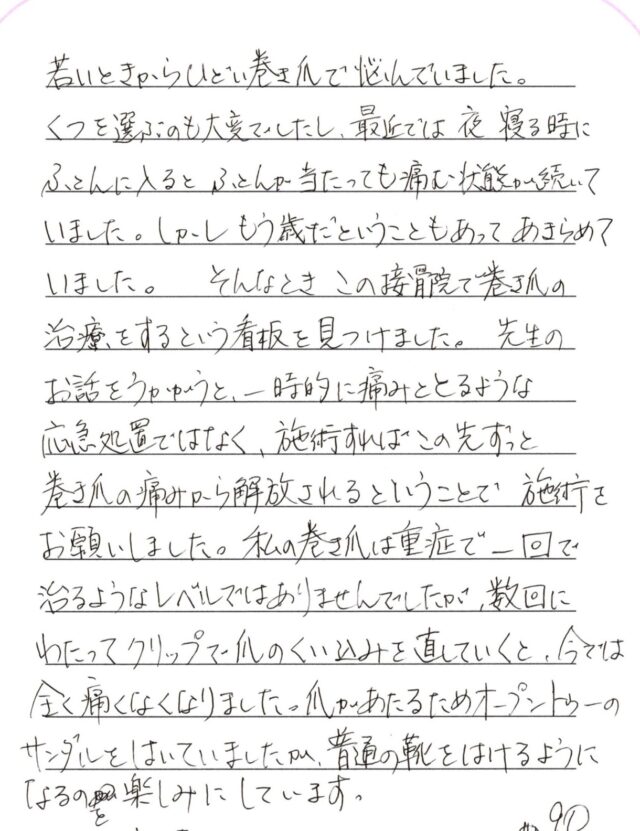 若いときからひどい巻き爪で悩んでいました。
くつを選ぶのも大変でしたし、最近では 夜 寝る時に
ふとんに入ると ふとんが当たっても痛む状態が続いて
いました。しかし もう歳だということもあって あきらめて
いました。 そんなとき この接骨院で巻き爪の
治療をするという看板を見つけました。 先生の
お話をうかがうと、一時的に痛みをとるような
応急処置ではなく、施術すればこの先ずっと
巻き爪の痛みから解放されるということで 施術を
お願いしました。私の巻き爪は重症で一回で
治るようなレベルではありませんでしたが、数回に
わたってクリップで爪のくい込みを直していくと、今では
全く痛くなくなりました。爪があたるためオープントゥーの
サンダルをはいていましたが、普通の靴をはけるように
なるのを楽しみにしています。